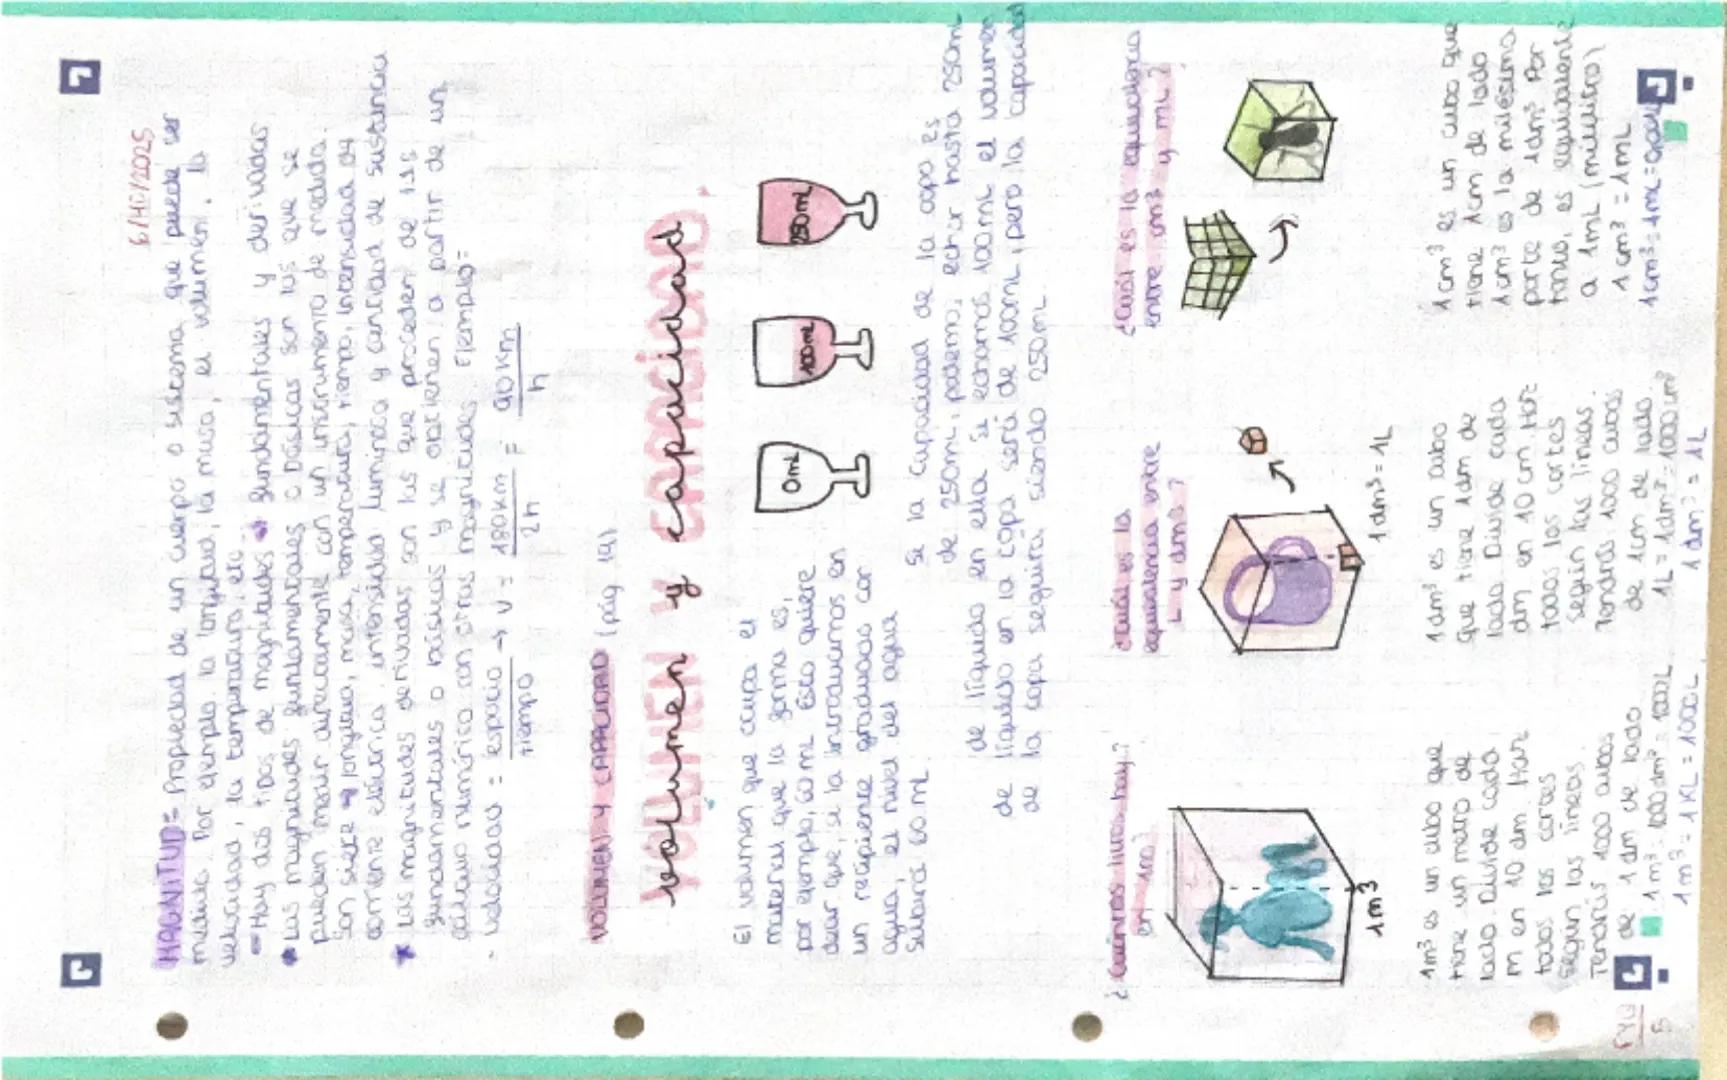 6/10/2025
MAGNITUD= Propiedad de un cuerpo o sistema que puede ser
medida. Por ejemplo la longitud, la masa, el volumen, la
velocidad, la temperatura, etc
Hay dos tipos de magnitudes fundamentales y derivadas
Las magnitudes fundamentales o básicas son las que se
pueden medir directamente con un instrumento de medida.
Son siete longitud, masa, temperatura, tiempo, intensidad de
corriente eléctrica, intensidad lumínica y cantidad de sustancia
Las magnitudes derivadas son las que proceden de las
fundamentales o básicas y se obtienen a partir de un
cálculo numérico con otras magnitudes. Ejemplo=
velocidad = espacio → v = 180km = 90km
tiempo 2h h
VOLUMEN Y CAPACIDAD (pág 19)
VOLUMEN Y CAPACIDAD
volumen y capacidad
0mL 100mL 250mL
El volumen que ocupa el
material que la forma es,
por ejemplo, 60 mL. Esto quiere
decir que, si la introducimos en
un recipiente graduado con
agua, el nivel del agua
subirá 60 mL
Si la capacidad de la copa es
de 250mL, podemos echar hasta 250mL
de líquido en ella. Si echamos 100mL el volumen
de líquido en la copa será de 100mL, pero la capacidad
de la copa seguirá siendo 250mL
¿Cuántos litros hay
en 1m³?
1m³
1m³ es un cubo que
tiene un metro de
lado. Divide cada
m en 10 dm. Haz
todos los cortes
según las líneas.
Tendrás 1000 cubos
de 1 dm de lado
1m³ = 1000dm³ = 1000L
1m³ = 1KL = 1000L
¿Cuál es la
equivalencia entre
L y dm³?
1dm³ = 1L
1dm³ es un cubo
que tiene 1dm de
lado. Divide cada
dm en 10 cm. Haz
todos los cortes
según las líneas.
Tendrás 1000 cubos
de 1cm de lado
1L = 1dm³ = 1000cm³
1dm³ = 1L
¿Cuál es la equivalencia
entre cm³ y mL?
1cm³ es un cubo que
tiene 1cm de lado
1cm³ es la milésima
parte de 1dm³. Por
tanto, es equivalente
a 1mL (mililitro)
1cm³ = 1mL
1cm³ = 1mL =
5